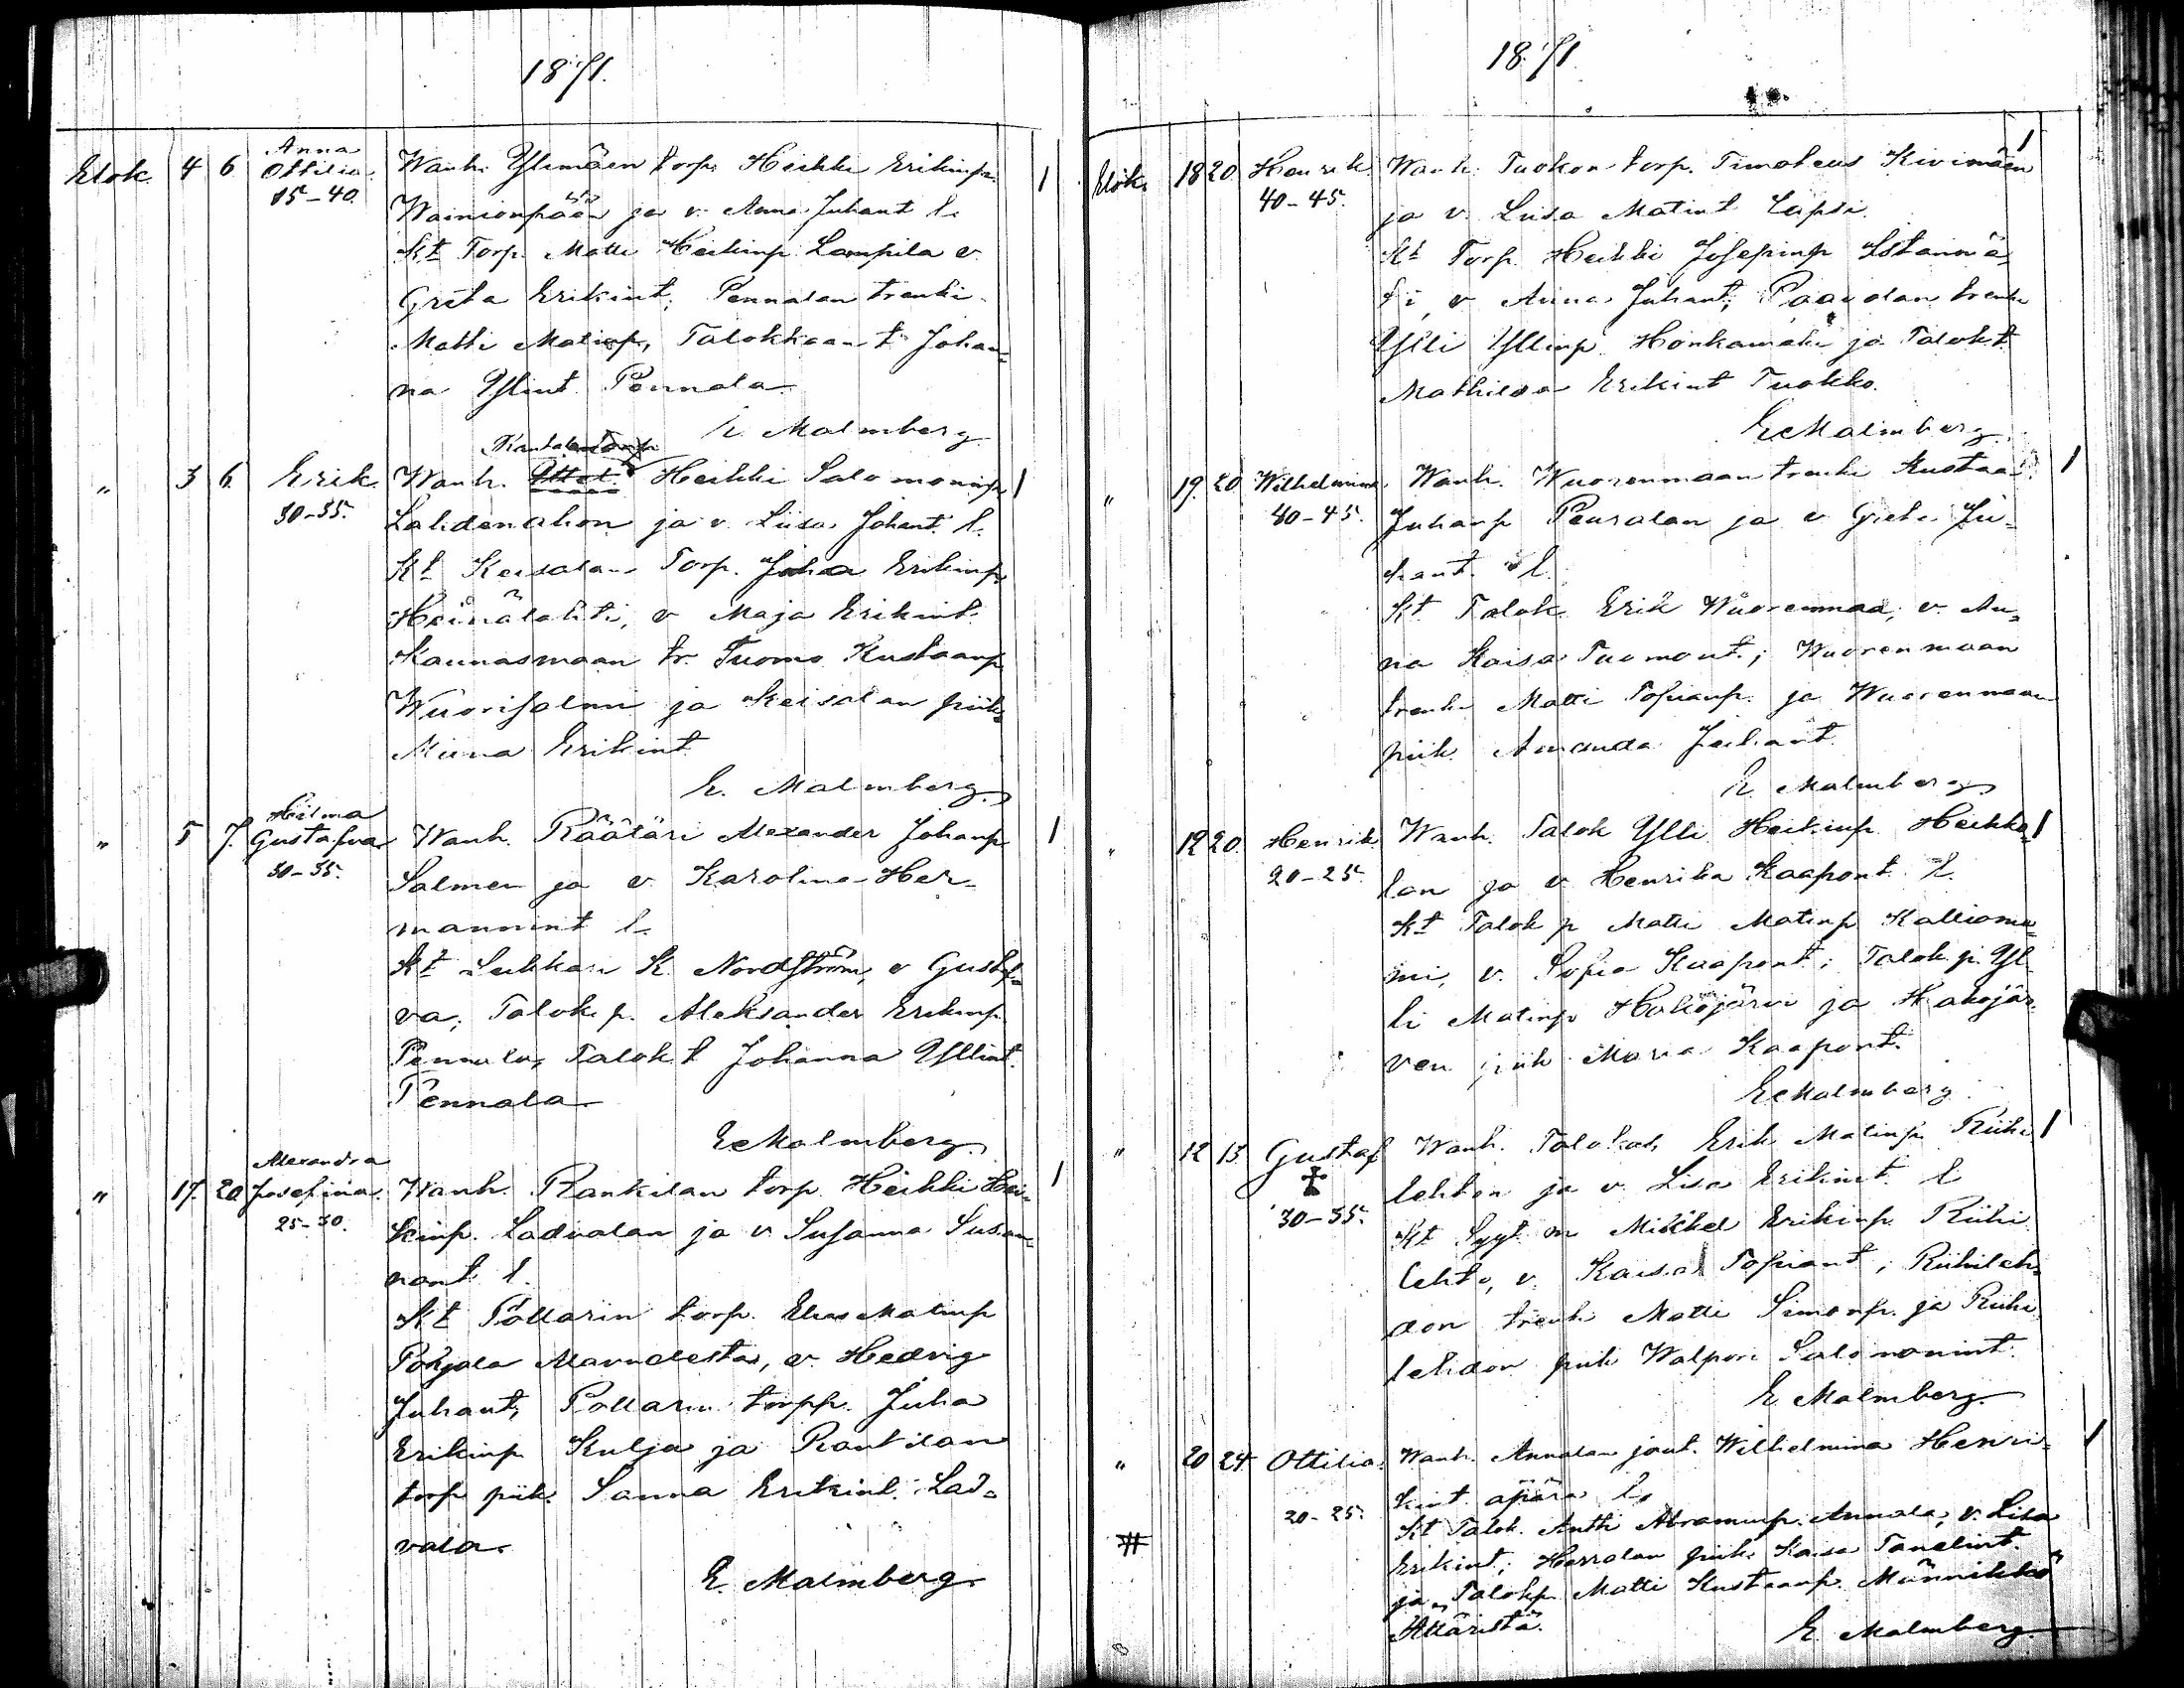 1871.
Elok. 4 6 Anna Ottilia 35-40. Wanh. Ylimäen torp. Heikki Erikinp.
Wainionpään ja v. Anna Juhant l.
Kt Torp. Matti Heikinp Lampila v.
Greta Erikint; Pennalan trenki
Matti Matinp, Talokkaan t. Johan=
na Yllint Pennala.
E. Malmberg
" 3 6. Erik 30-35. Wanh. Heikki Salomoninp
Lahdenahon ja v. Liisa Johant. l.
Kt Keisalan Torp. Juha Erikinp.
Heinälahti, v Maja Erikint.
Kaunasmaan tr. Tuomo Kustaanp
Wuorisalmi ja Keisalan piik.
Miina Erikint
E. Malmberg.
" 5 7. Hilma Gustafva 30-35. Wanh. Räätäri Alexander Johanp
Salmen ja v. Karolina Her=
mannint l.
Kt Seikkari K. Nordström, v Gustaf=
va; Talok. p. Aleksander Erikinp.
Pennala, Talok t Johanna Yllint.
Pennala
E. Malmberg.
" 17. 20 Alexandra Josefina 25-30. Wanh. Rankilan torp Heikki Hei=
kinp. Ladvalan ja v Susanna Susan=
nant l.
Kt Pollarin torp. Elias Matinp
Pohjola Alavudesta, v. Hedvig
Juhant, Pollarin torpp. Juha
Erikinp Kulja ja Rantilan
torp piik. Sanna Erikint. Lad=
vala.
E. Malmberg
1871
Elok. 18 20 Henrik 40-45. Wanh. Tuokon torp. Timoteus Kivimäen
ja v Liisa Matint Lapsi.
Kt Torp. Heikki Josepinp
v Anna Juhant; Paavolan trenki
Ylli Yllinp. Honkamäki ja Talok t.
Mathilda Erikint Tuokko.
E Malmberg.
" 19. 20 Wilhelmina 40-45. Wanh. Wuorenmaan trenki Kustaa
Juhanp Peuralan ja v Greta Ju=
hant. l.
Kt Talok. Erik Wuorenmaa, v. An=
na Kaisa Tuomont.; Wuorenmaan
trenki Matti Tofianp. ja Wuorenmaan
piik. Amanda Juhant.
E. Malmberg
" 12 20. Henrik 20-25. Wanh. Talok Ylli Heikinp. Heikki=
lan ja v Henrika Kaapont l.
Kt Talok p Matti Matinp Kalliomä=
v. Sofia Kaapont; Talok. p. Yl=
li Matinp Hakojärvi ja Hakojär=
ven piik Maria Kaapont.
E Malmberg
" 12 13 Gustaf 30-35. Wanh. Talokas Erik Matinp Riihi=
lehdon ja v. Lisa Erikint l
Kt Syyt. m Mikkel Erikinp Riihi
lehto, v. Kaisa Tofiant; Riihileh=
don trenki Matti Simonp. ja Riihi
lehdon piik Walpori Salomonint.
E. Malmberg.
" 20 24 Ottilia. 20-25. Wanh. Annalan jout. Wilhelmina Henri=
kint. äpärä l.
Kt Talok. Antti Abraminp. Annala, v. Lisa
Erikint; Herralan piik. Kaisa Tanelint.
ja Talokp. Matti Kustaanp. Männikkö
Ätäristä.
E. Malmberg.